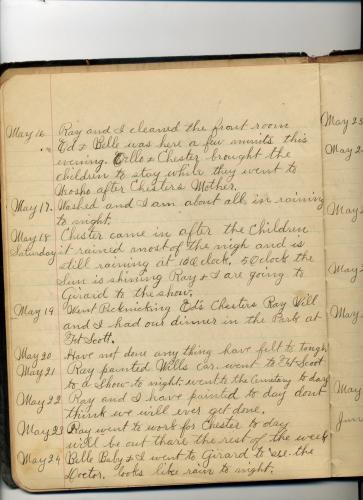 May 16 Ray and I cleaned the front room
Ed & Belle was here a few minits this
evening. Orllo & Chester brought the
children to stay while they went to
Neosho after Chesters Mother.
May 17. Washed and I am about all in raining
to night.
May 18 Chester came in after the Children
Saturday it rained amost of the nigh and is
still raining at 10 O,clock, 5 O,clock the
Sun is shining Ray & I are going to
Girard to the show.
May 19 Went Pecknicking Eds Chesters Ray Will
and I had our dinner in the Park at
Ft Scott.
May 20 Have not done any thing have felt to tough
May 21 Ray painted Wills car. went to Ft Scott
to a show to night. went to the Cemetery to day
May 22 Ray and I have painted to day dont
think we will ever get done.
May 23 Ray went to work for Chester to day
will be out thare the rest of the week
May 24 Belle Baby & I went to Girard to see the
Doctor. looks like rain to night.
May 23
May 2
May
May 2
May
May
June